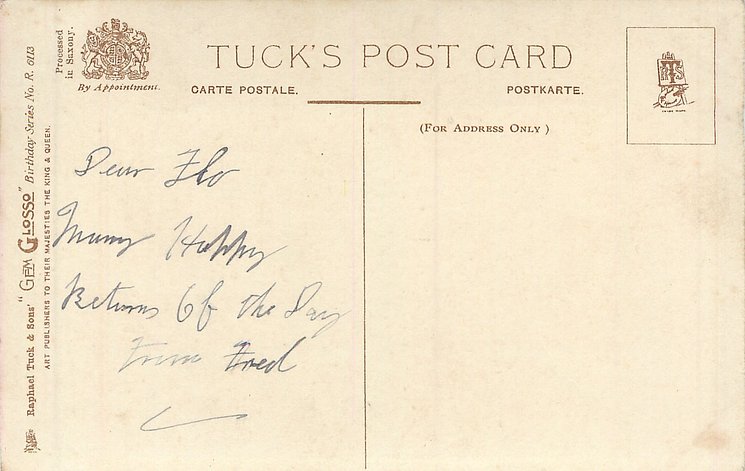 TUCK'S POST CARD
CARTE POSTALE.
POSTKARTE.
(FOR ADDRESS ONLY)
Processed
in Saxony.
By Appointment.
Raphael Tuck & Sons' "GEM GLOSSO" Birthday Series No. R. 6113
ART PUBLISHERS TO THEIR MAJESTIES THE KING & QUEEN.
Dear Flo
Many Happy
Returns Of the Day
From Fred